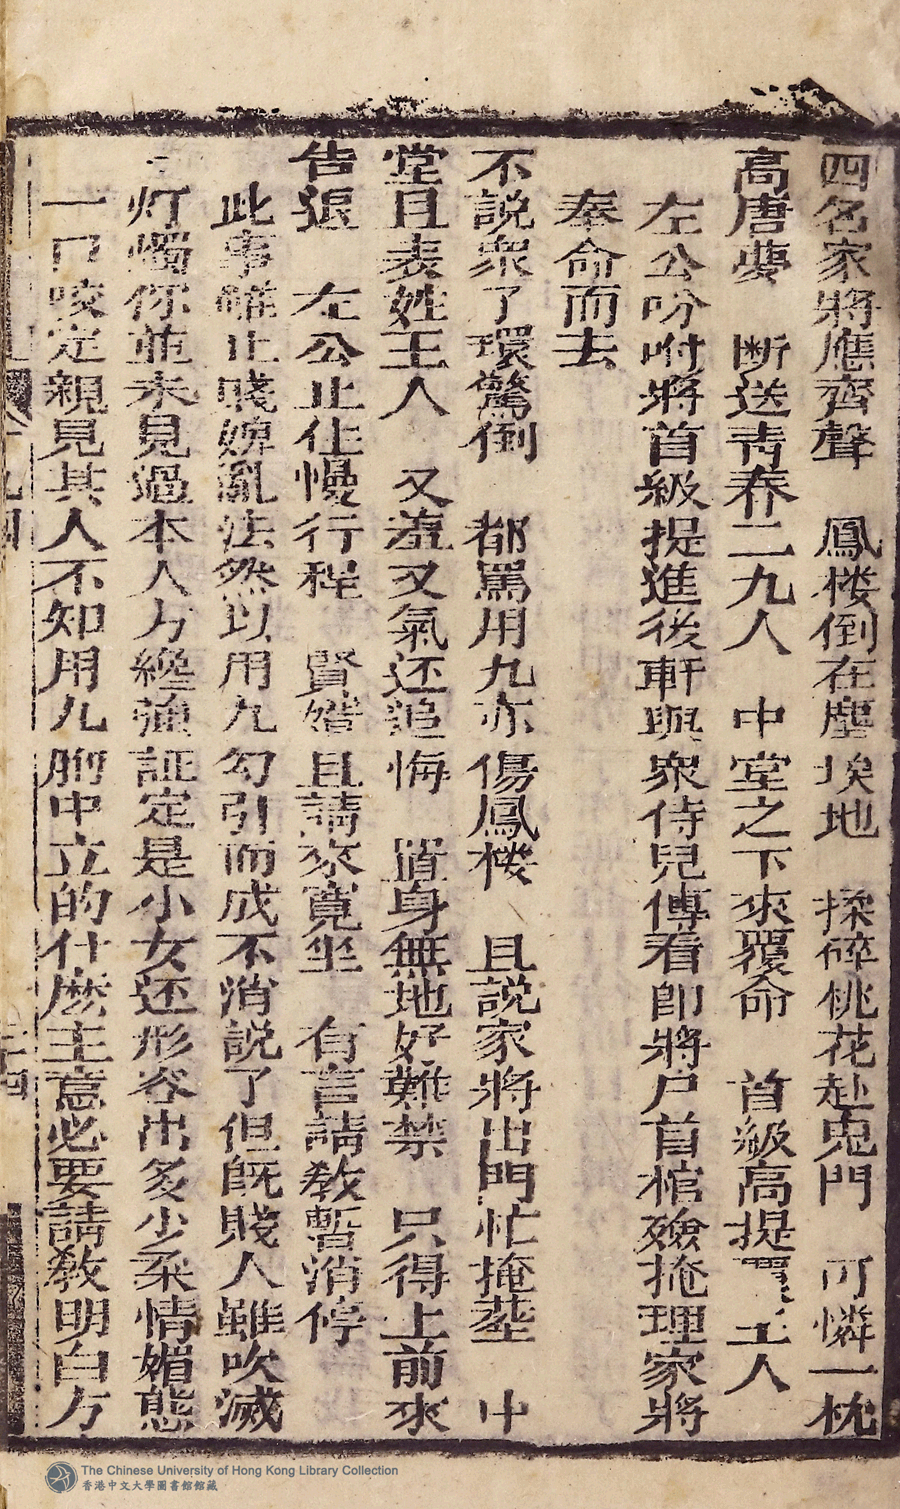 四名家將應齊聲　鳳楼倒在塵埃地　揉碎桃花赴鬼門　可憐一枕
高唐夢　断送青春二九人　中堂之下來覆命　首級高提　王人
左公吩咐將首級提進後軒與衆侍兒傳看即將户首棺殮掩理家將
奉命而去
不說衆了環驚倒　都罵用九亦傷鳳楼　且説家將出門忙掩塟　中
堂且表姓王人　又羞又氣还追悔　置身無地好難禁　只得上前來
告退　左公止住慢行程　賢婿且請來寬坐　有言請敎暫消停
此事雖止賤婢亂法然以用九勾引而成不消説了但既賤人雖吹滅
灯燭你並未見過本人方纔強証定是小女还形容出多少柔情媚態
一口咬定親見其人不知用九胸中立的什麽主意必要請敎明白方
The Chinese University of Hong Kong Library Collection
香港中文大學圖書館館藏